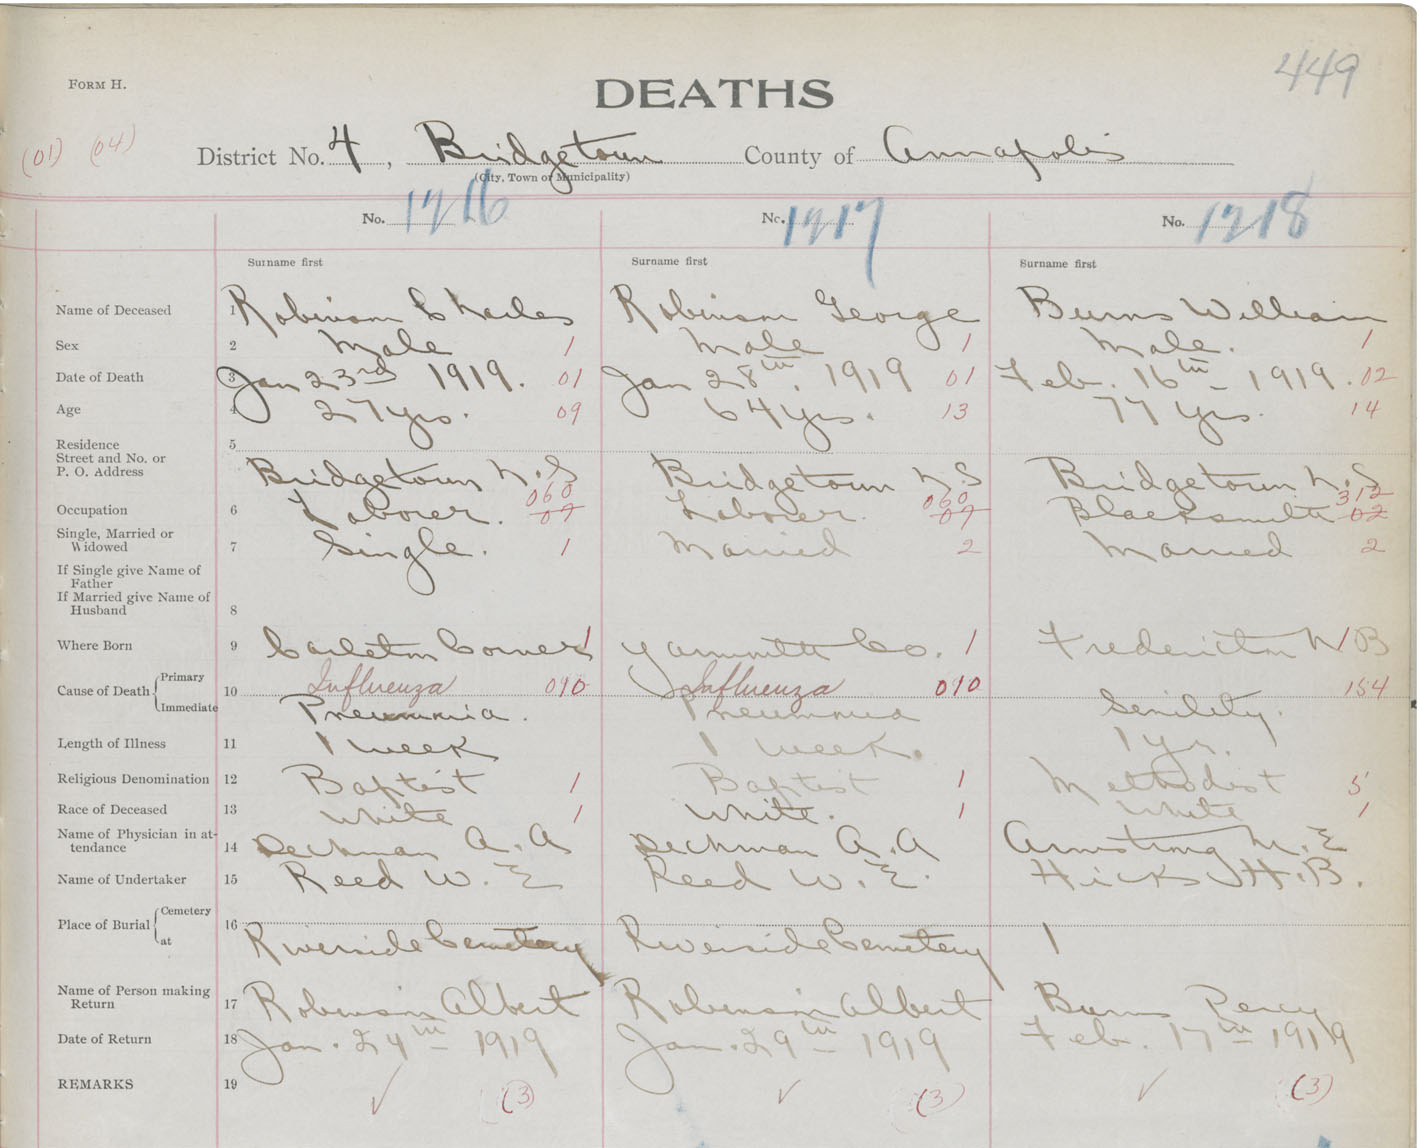 449
FORM H.
DEATHS
(01) (04)
District No. 4, Bridgetown County of Annapolis
(City, Town or Municipality)
No. 1216 No. 1217 No. 1218
Surname first Surname first Surname first
Name of Deceased 1 Robinson Charles Robinson George Burns William
Sex 2 Male 1 Male 1 Male. 1
Date of Death 3 Jan 23rd 1919. 01 Jan 28th, 1919 01 Feb. 16th 1919. 02
Age 4 27 yrs. 09 64 yrs. 13 77 yrs. 14
Residence 5
Street and No. or
P. O. Address Bridgetown N.S Bridgetown N.S Bridgetown N.S
060 060 312
Occupation 6 Laborer. 07 Laborer. 07 Blacksmith 02
Single, Married or
Widowed 7 Single. 1 Married 2 Married 2
If Single give Name of
Father
If Married give Name of
Husband 8
Where Born 9 Carleton Corner 1 Yarmouth Co. 1 Fredericton N B
Primary
Cause of Death 10 Influenza 010 Influenza 010 154
Immediate Pneumonia. Pneumonia Senility.
Length of Illness 11 1 week 1 week. 1 yr.
Religious Denomination 12 Baptist 1 Baptist 1 Methodist 5
Race of Deceased 13 White 1 White. 1 White 1
Name of Physician in at-
tendance 14 Deckman A. A Deckman A. A Armstrong M. E
Name of Undertaker 15 Reed W. E Reed W. E. Hicks H. B.
Cemetery
Place of Burial 16
at Riverside Cemetery Riverside Cemetery 1
Name of Person making
Return 17 Robinson Albert Robinson Albert Burns Percy
Date of Return 18 Jan. 24th 1919 Jan. 29th 1919 Feb. 17th 1919
REMARKS 19 (3) (3) (3)